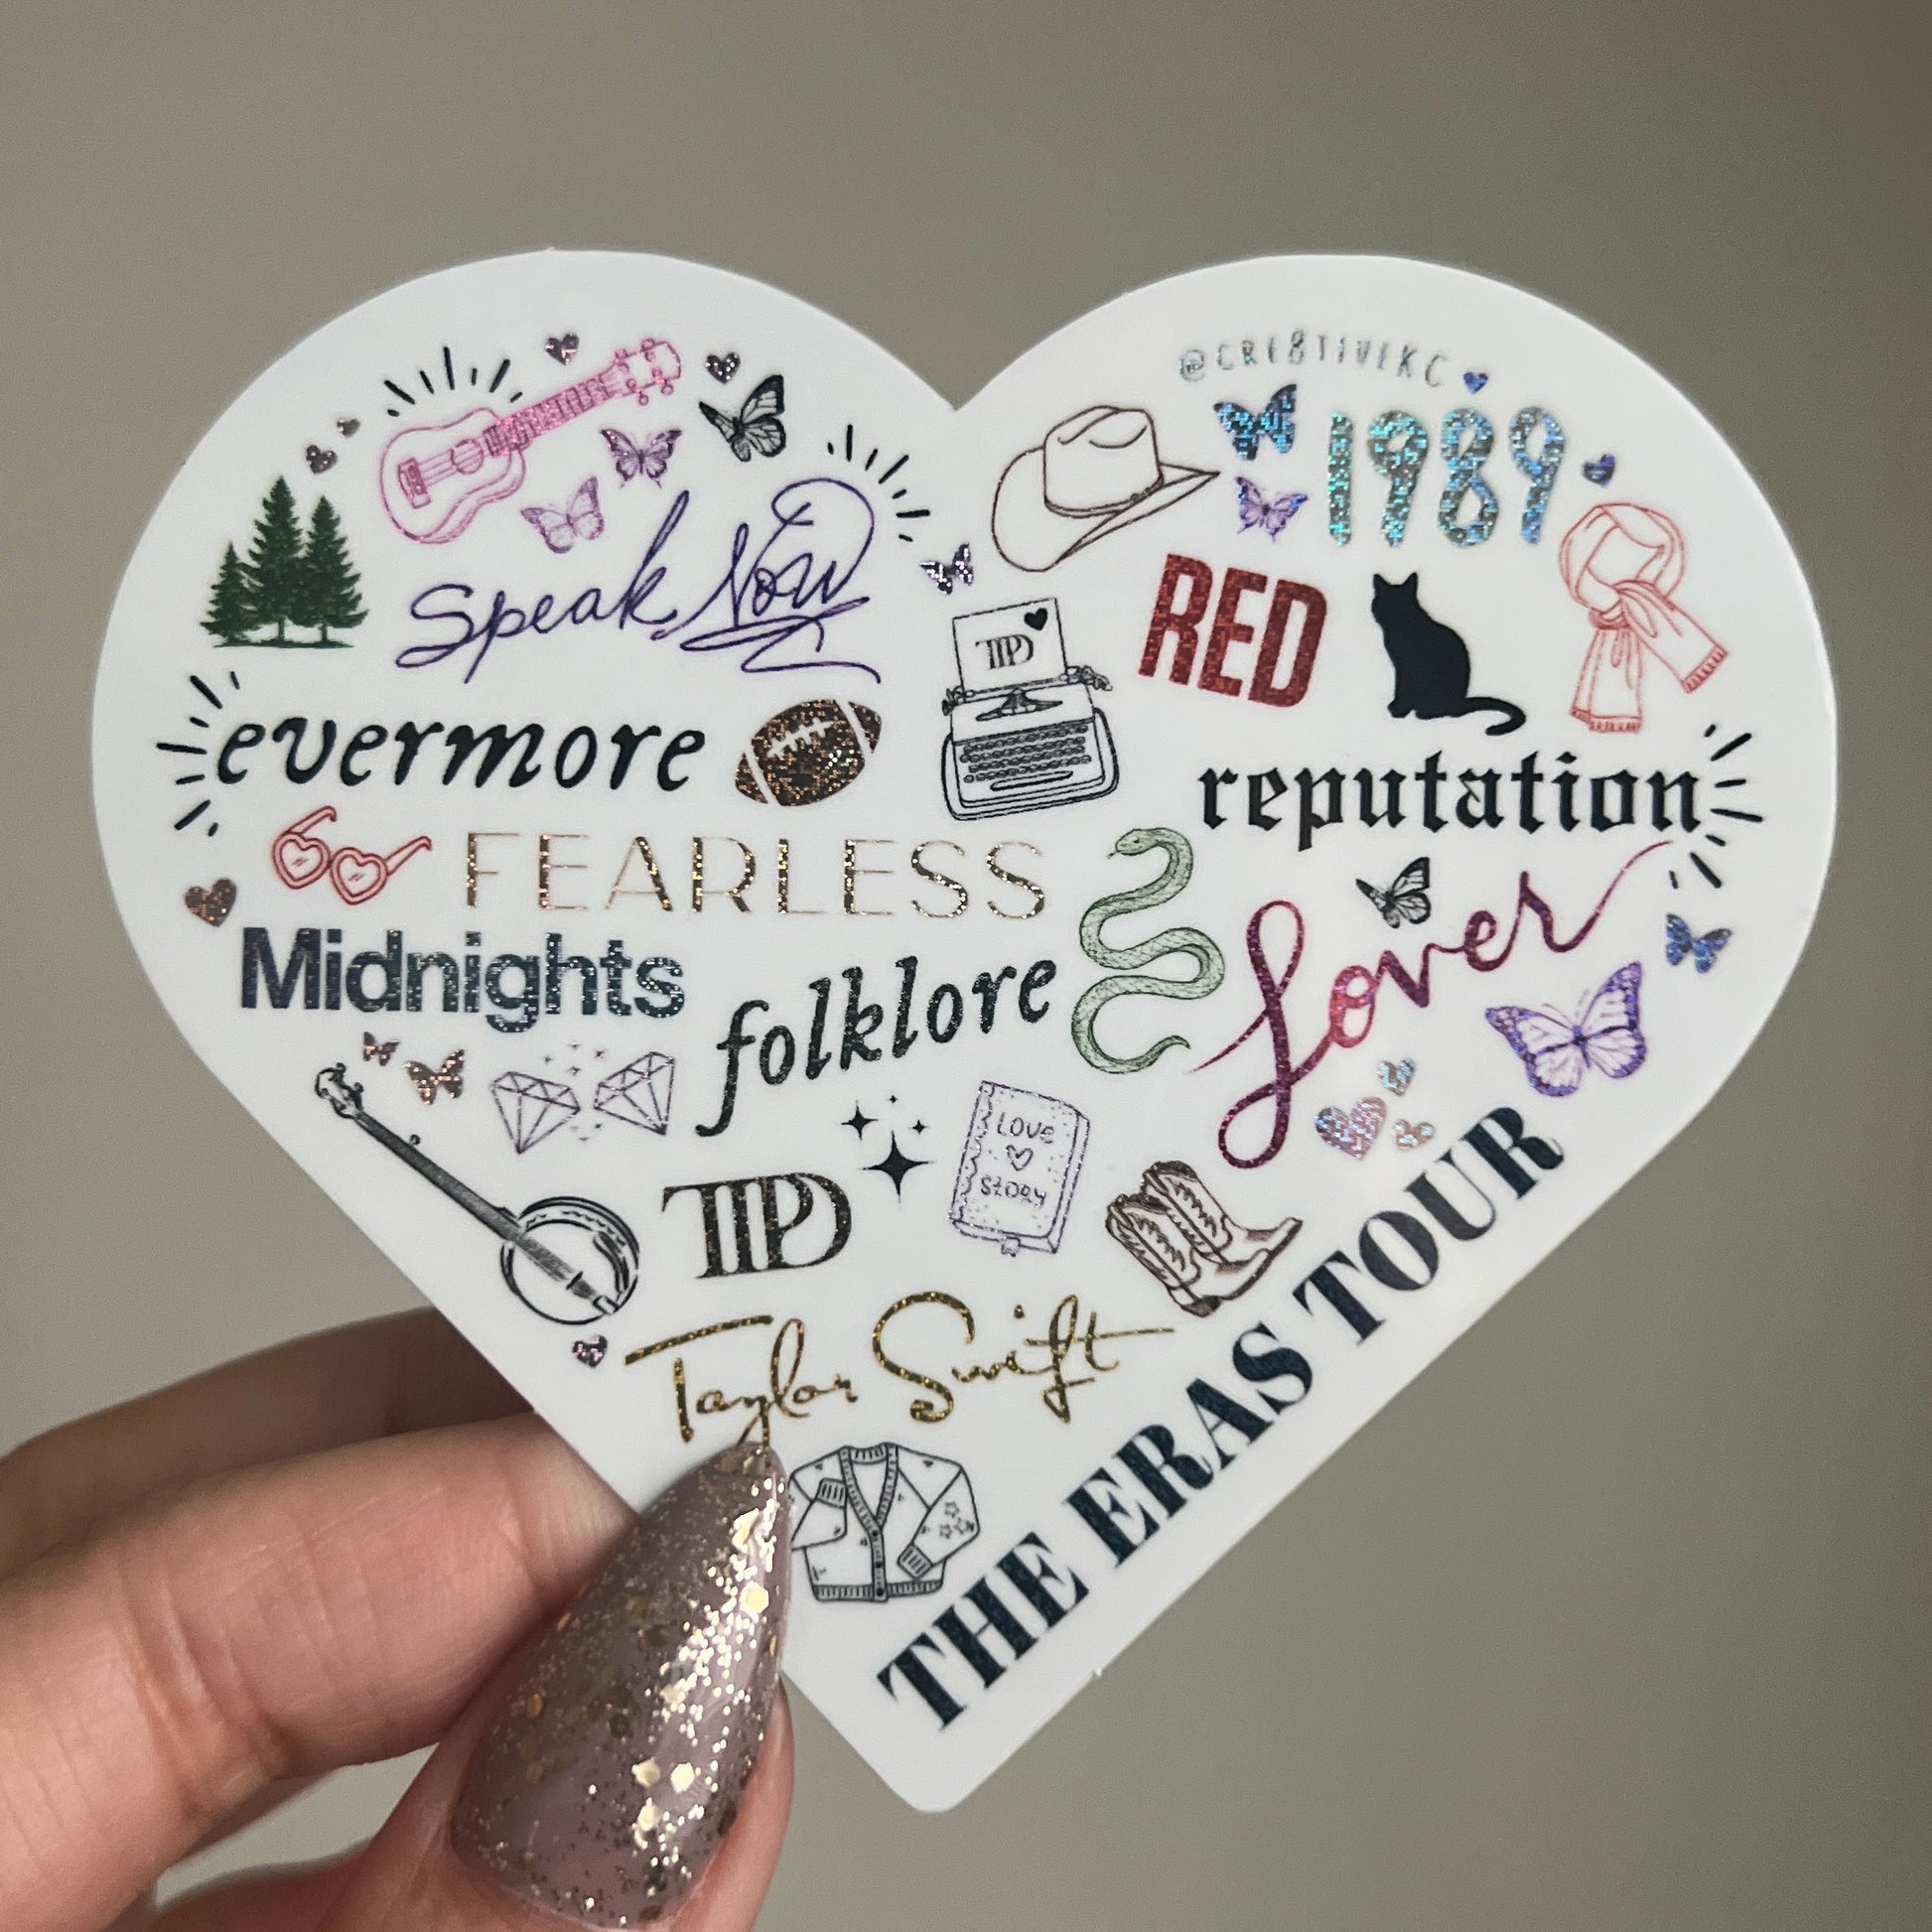 @CRE8TIVEKC
1989
Speak Now
RED
TTPD
evermore
reputation
FEARLESS
Lover
Midnights
folklore
LOVE
STORY
TTPD
Taylor Swift
THE ERAS TOUR